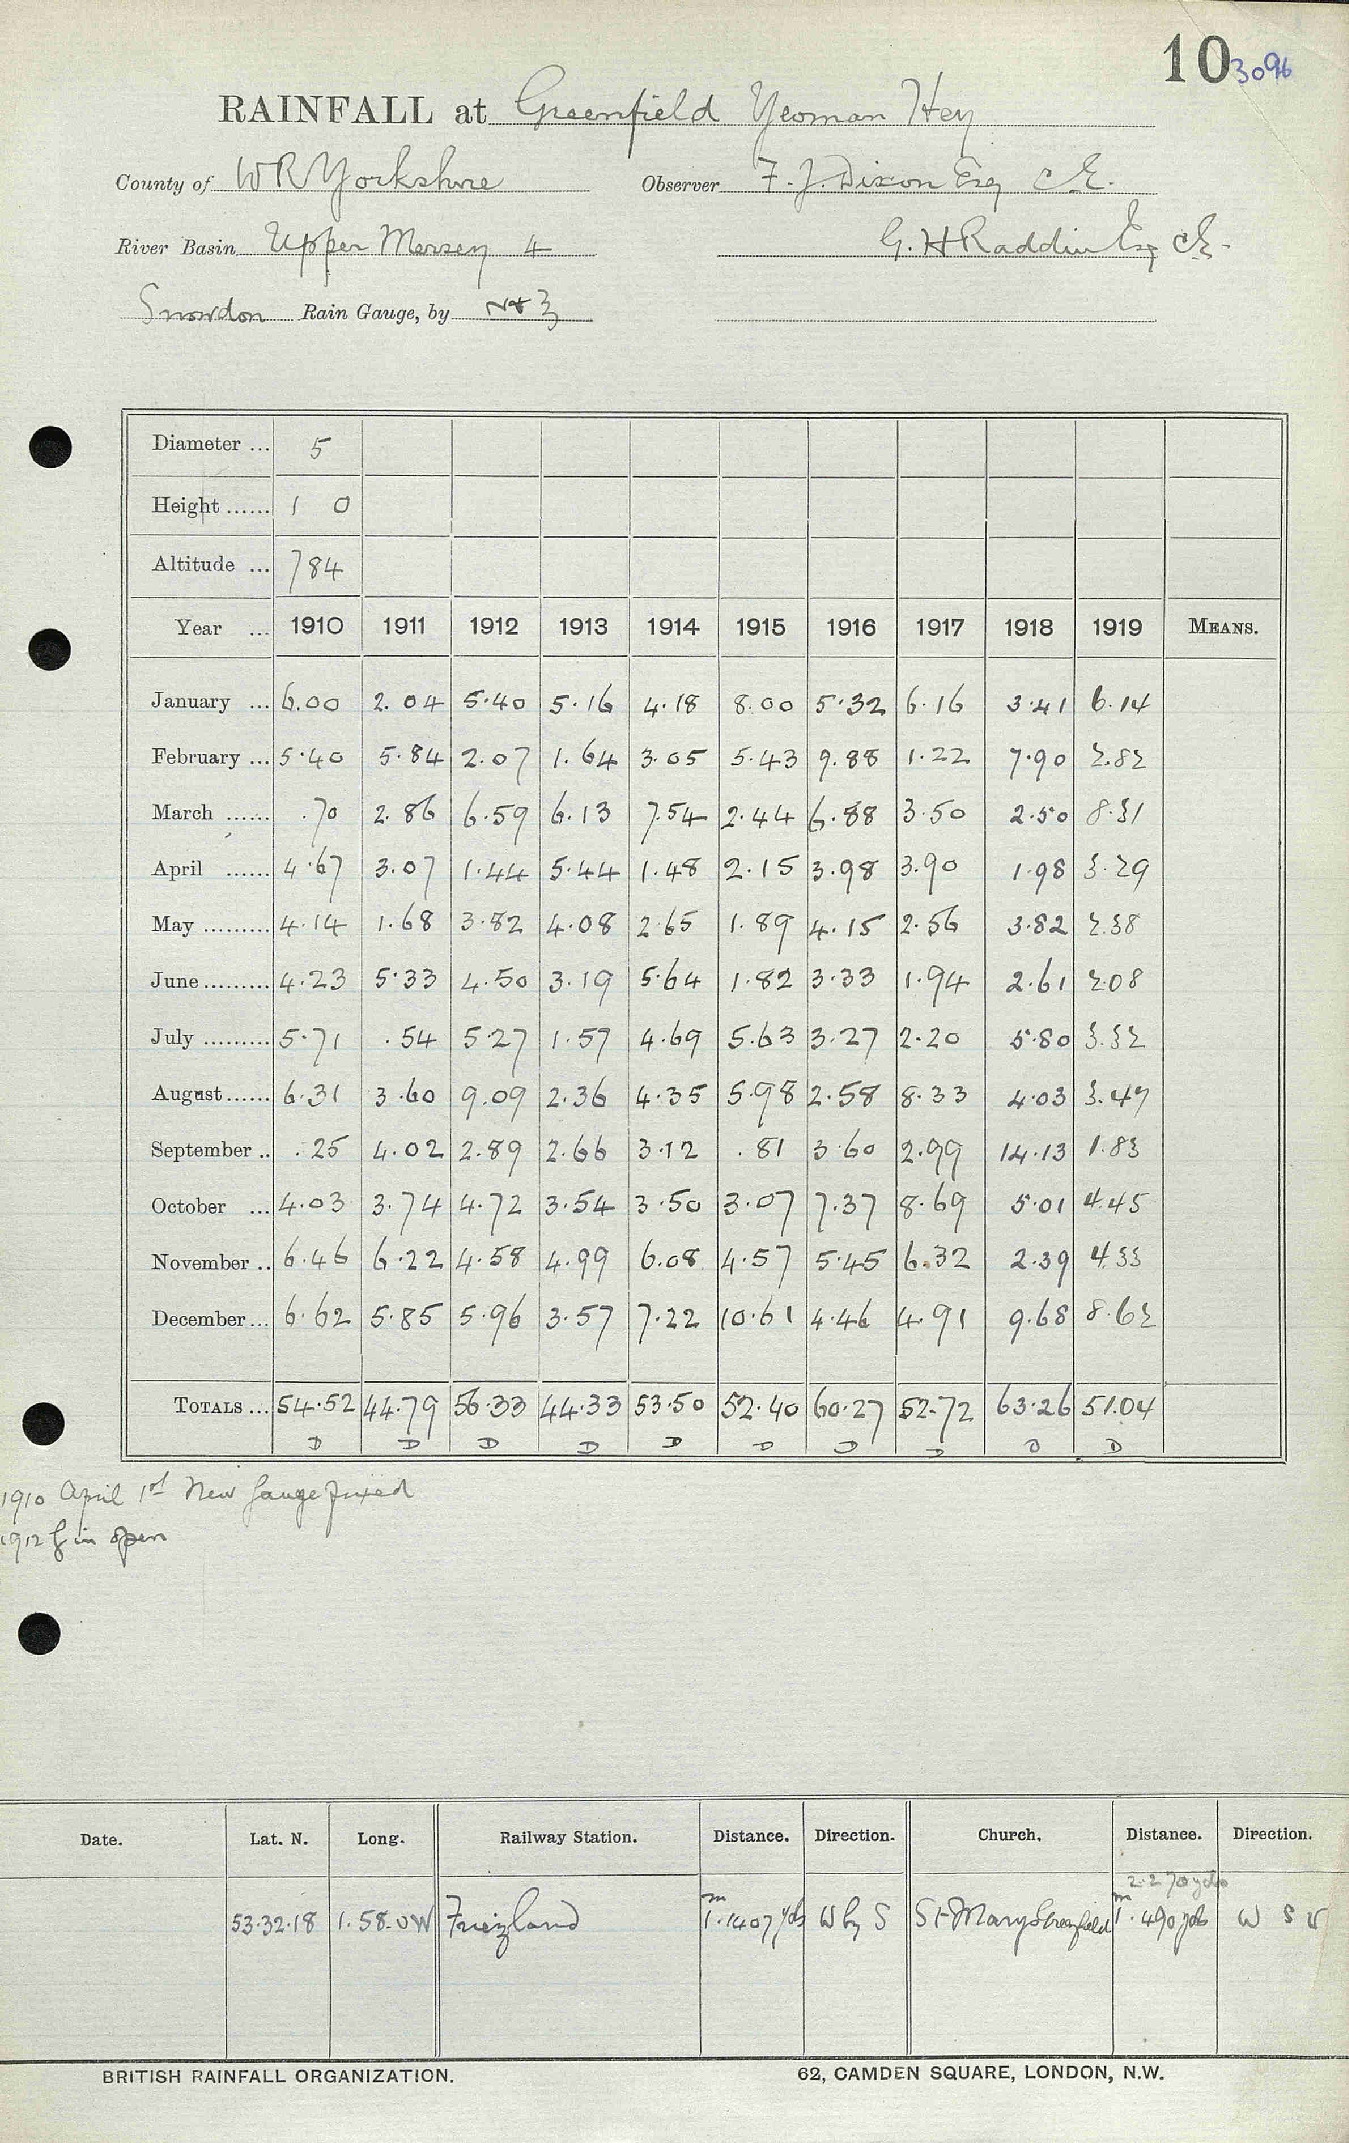 10 3096
RAINFALL at Greenfield Yeoman Hey
County of WR Yorkshire Observer F. J. Dixon Esq CE.
River Basin Upper Mersey 4 G. H Raddin Esq CE.
Snowdon Rain Gauge, by N & Z
Diameter ... 5
Height ...... 1 0
Altitude ... 784
Year ... 1910 1911 1912 1913 1914 1915 1916 1917 1918 1919 MEANS.
January ... 6.00 2.04 5.40 5.16 4.18 8.00 5.32 6.16 3.41 6.14
February ... 5.40 5.84 2.07 1.64 3.05 5.43 9.88 1.22 7.90 2.82
March ...... .70 2.86 6.59 6.13 7.54 2.44 6.88 3.50 2.50 8.31
April ...... 4.67 3.07 1.44 5.44 1.48 2.15 3.98 3.90 1.98 3.29
May ......... 4.14 1.68 3.82 4.08 2.65 1.89 4.15 2.56 3.82 2.38
June ......... 4.23 5.33 4.50 3.19 5.64 1.82 3.33 1.94 2.61 2.08
July ......... 5.71 .54 5.27 1.57 4.69 5.63 3.27 2.20 5.80 3.32
August ...... 6.31 3.60 9.09 2.36 4.35 5.98 2.58 8.33 4.03 3.47
September .. .25 4.02 2.89 2.66 3.12 .81 3.60 2.99 14.13 1.83
October ... 4.03 3.74 4.72 3.54 3.50 3.07 7.37 8.69 5.01 4.45
November .. 6.46 6.22 4.58 4.99 6.08 4.57 5.45 6.32 2.39 4.33
December ... 6.62 5.85 5.96 3.57 7.22 10.61 4.46 4.91 9.68 8.62
TOTALS ... 54.52 44.79 56.33 44.33 53.50 52.40 60.27 52.72 63.26 51.04
D D D D D D D D D D
1910 April 1st New gauge fixed
1912 G in open
Date. Lat. N. Long. Railway Station. Distance. Direction. Church. Distance. Direction.
2.270 yds
53.32.18 1.58.0W Friezland 1m.1407 yds W by S St Mary Greenfield 1m.490 yds W S W
BRITISH RAINFALL ORGANIZATION. 62, CAMDEN SQUARE, LONDON, N.W.